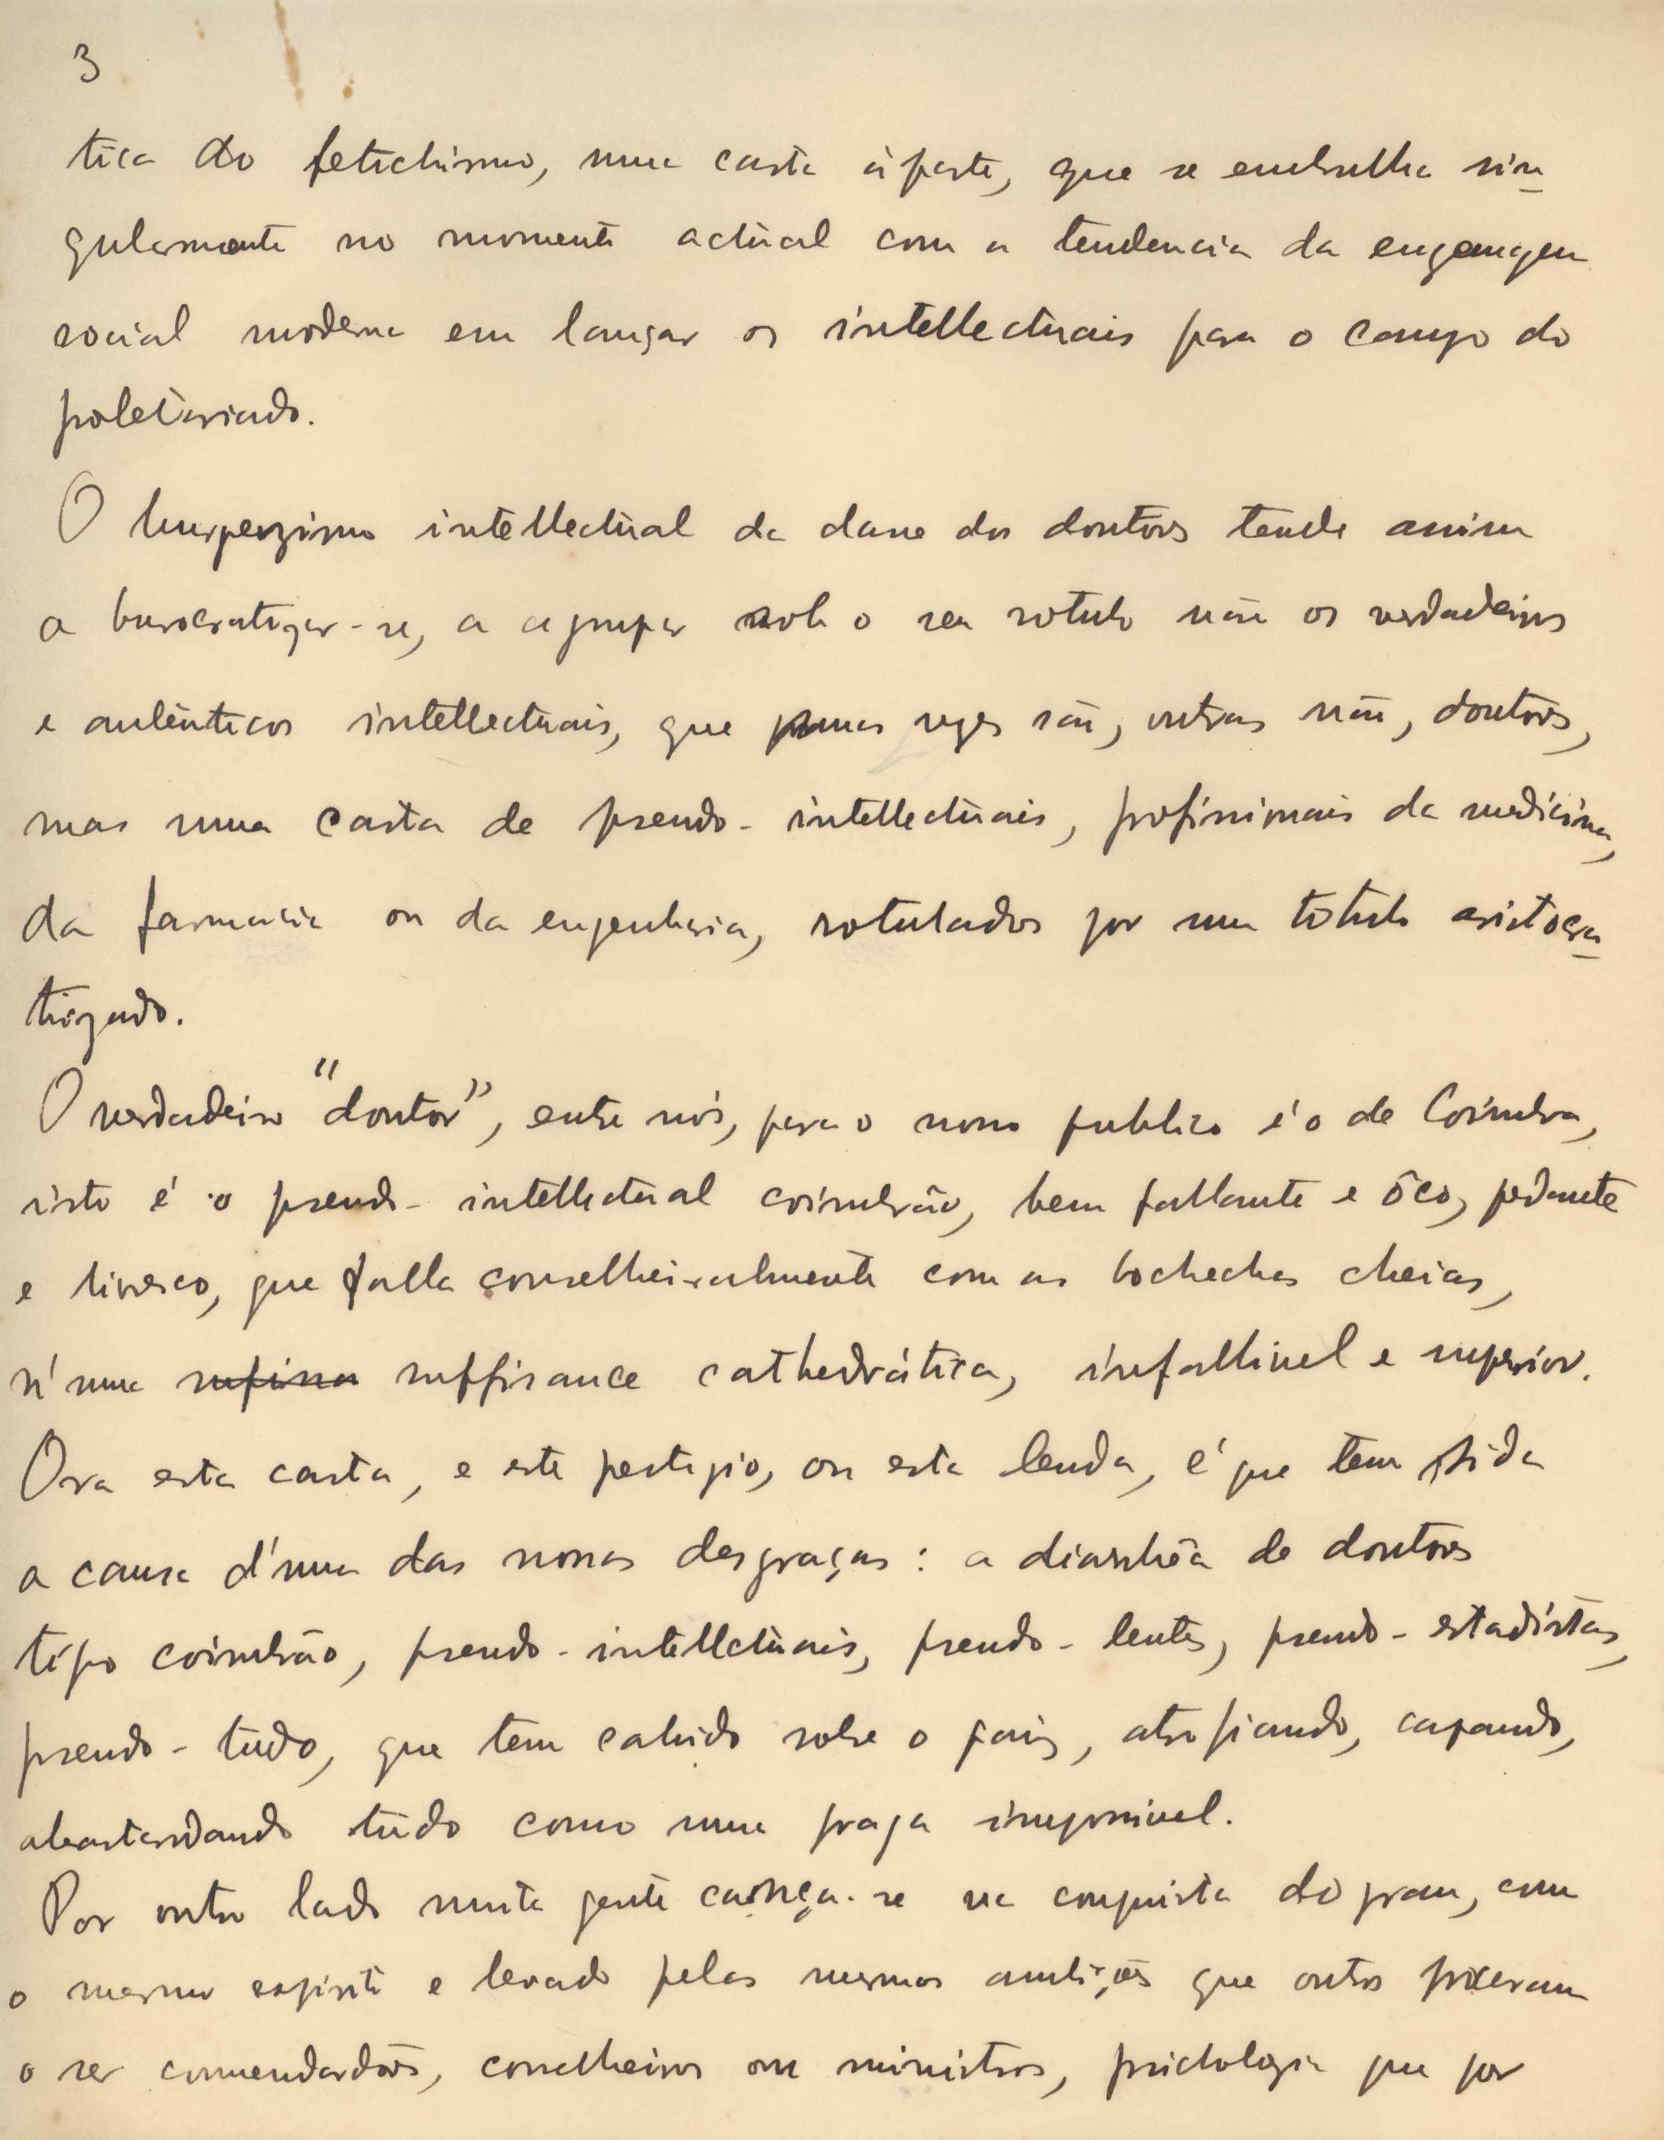 3
tica do fetichismo, uma casta à parte, que se embrulha sin-
gularmente no momento actual com a tendencia da engrenagem
social moderna em lançar os intellectuais para o campo do
proletariado.
O intellectual da classe dos doutores tende assim
a burocratizar-se, a agrupar sob o seu rotulo não os verdadeiros
e autênticos intellectuais, que umas vezes são, outras não, doutores,
mas uma casta de pseudo-intellectuais, profissionais da medicina,
da farmacia ou da engenharia, rotulados por um título aristocra-
tizado.
O verdadeiro "doutor", entre nós, para o nosso publico é o de Coimbra,
isto é o pseudo-intellectual coimbrão, bem fallante e ôco, pedante
e livresco, que falla conselheiralmente com as bochechas cheias,
n'uma sufisan suffisance cathedrática, infallivel e superior.
Ora esta casta, e este prestigio, ou esta lenda, é que tem sida
a causa d'uma das nossas desgraças: a diarrhêa de doutores
tipo coimbrão, pseudo-intellectuais, pseudo-lentes, pseudo-estadistas,
pseudo-tudo, que tem cahido sobre o paiz, atrofiando, capando,
abastardando tudo como uma praga impossivel.
Por outro lado muita gente cança-se na conquista do grau, com
o mesmo espirito e levado pelas mesmas ambições que outros puseram
o ser commendadores, conselheiros ou ministros, psichologia que por